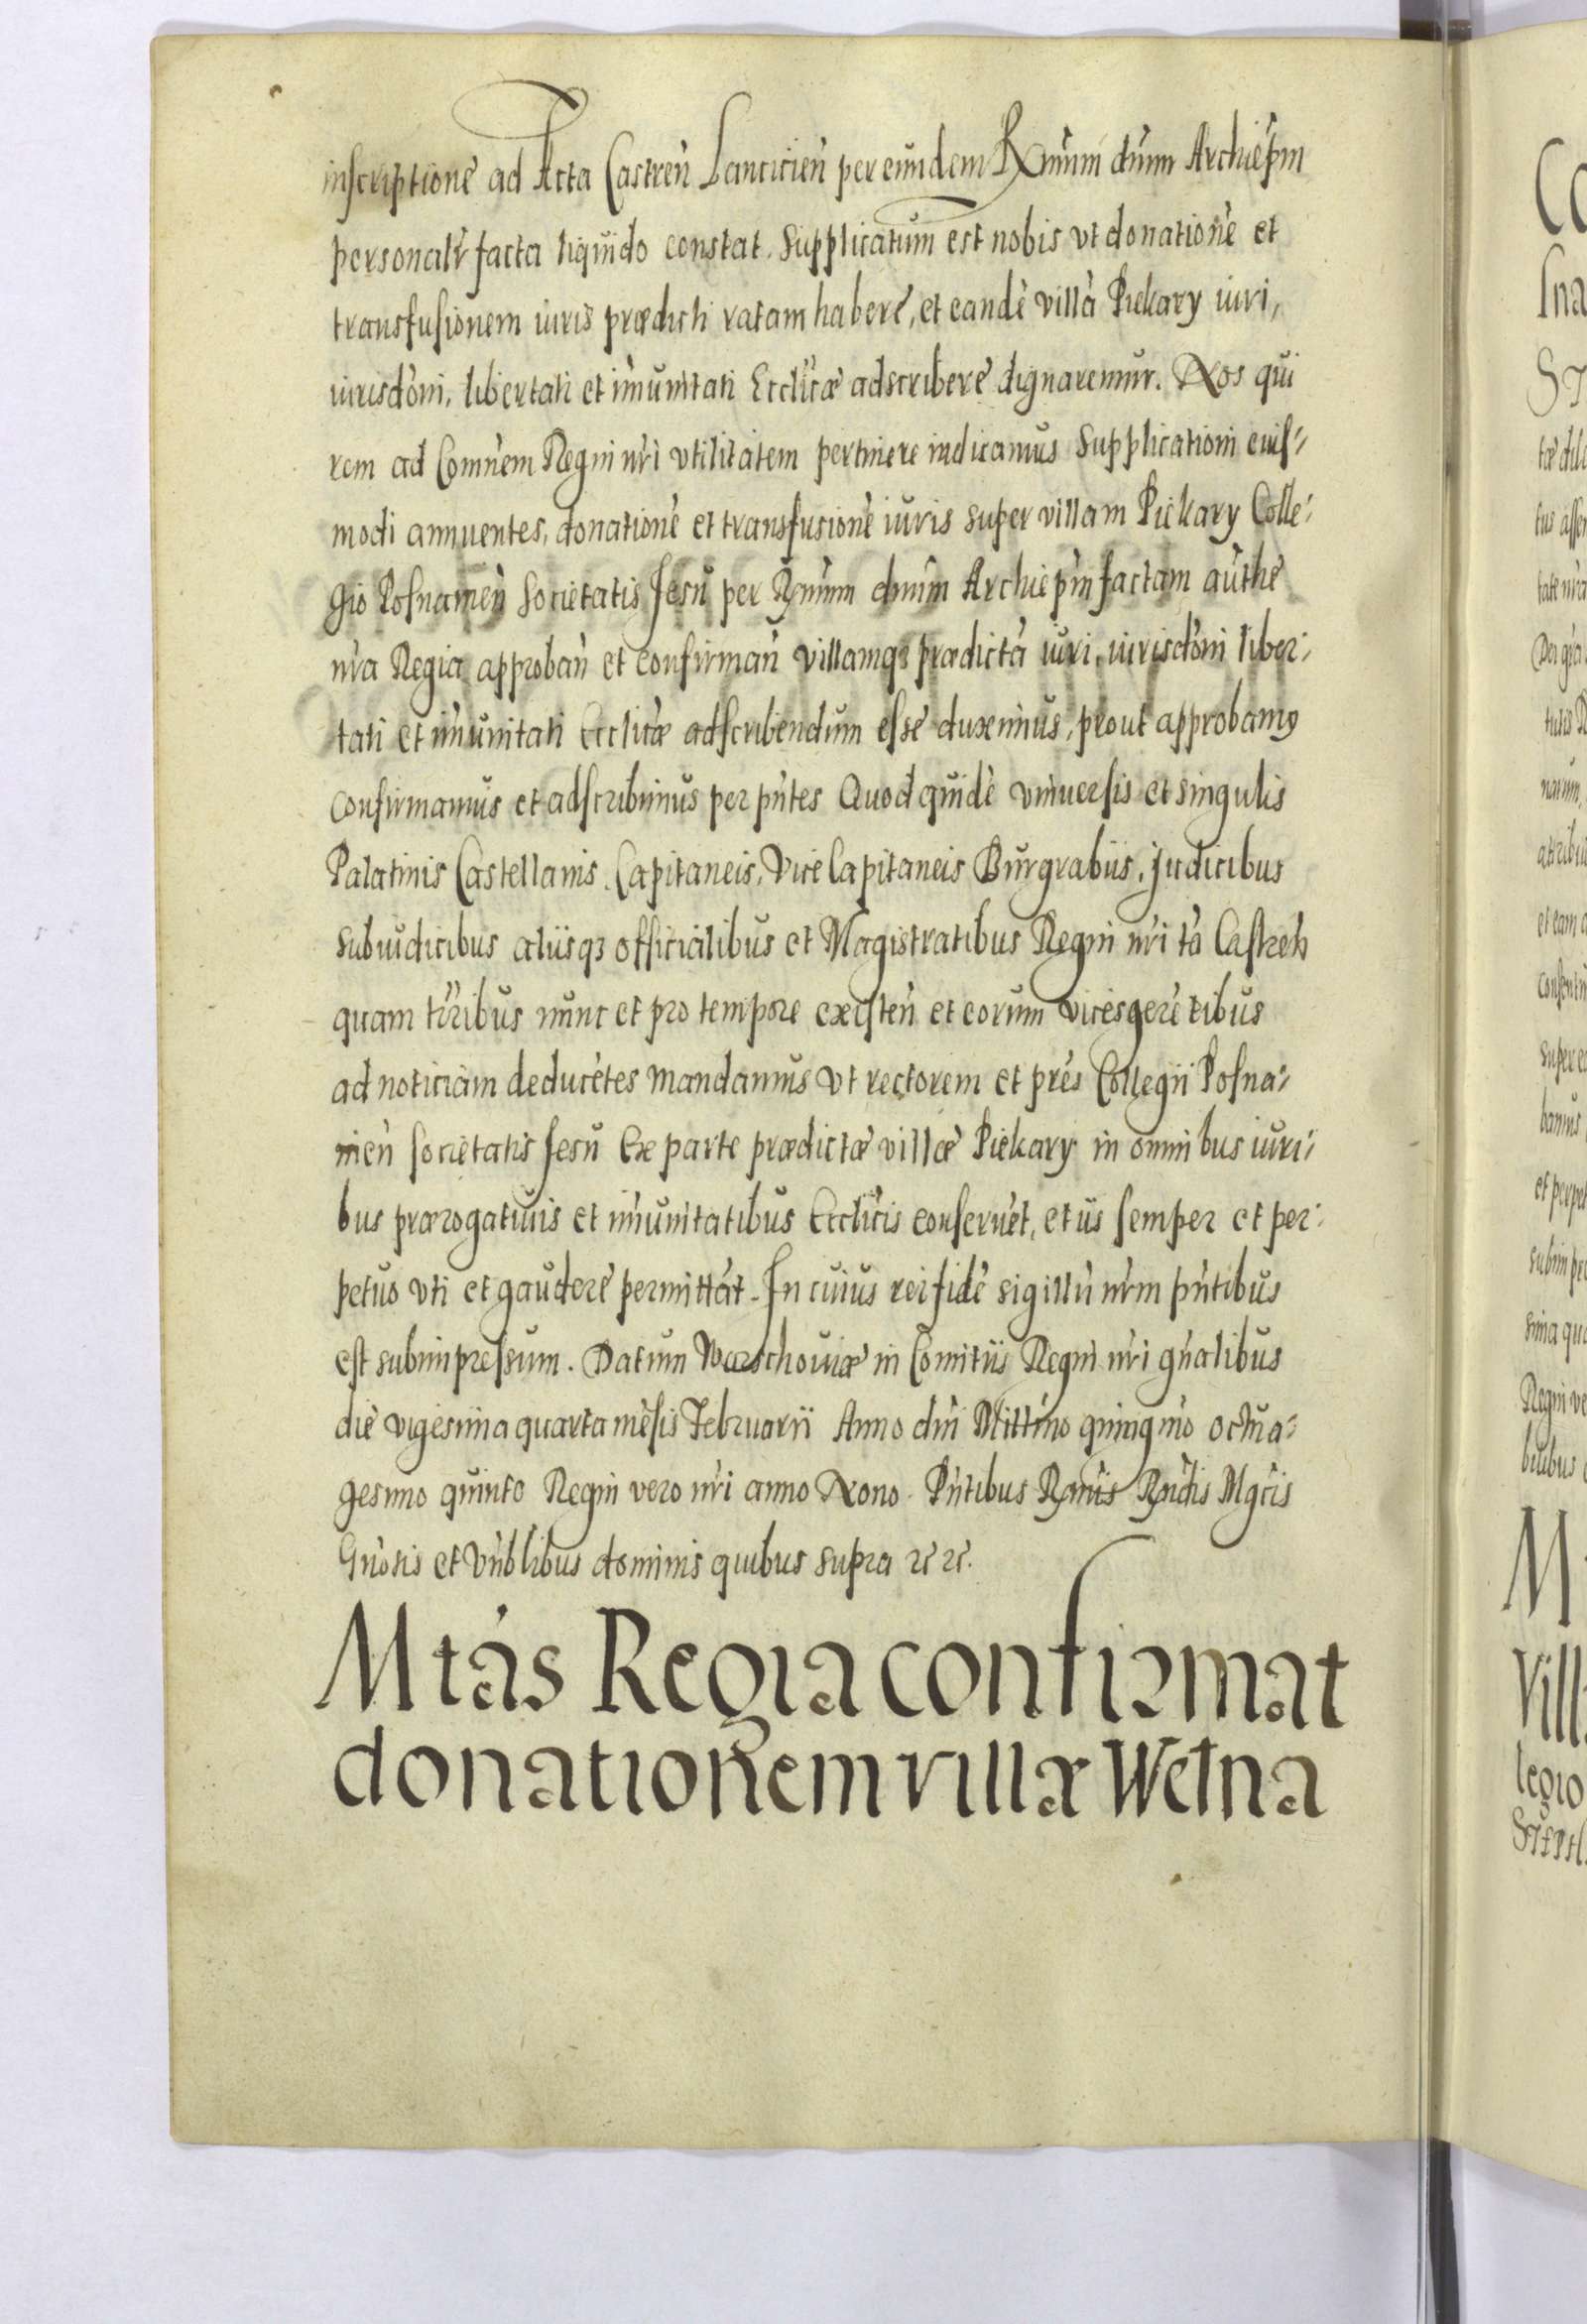 inscriptionē ad Acta Castren̄ Lancicien̄ per eundem Rxmum dnum Archiepm
personalr̄ facta liquido constat. Supplicatum est nobis vt donationē et
transfusionem iuris prædicti ratam habere, et eandē villā Piekary iuri,
iurisdoni, libertati et im̄unitati Eccl̄icæ adscribere dignaremur. Nos qui
rem ad Com̄nem Regni nr̄i vtilitatem pertinere iudicamus Supplicationi eius-
modi annuentes, donationē et transfusionē iuris super villam Piekary Colle-
gio Posnanien̄ Societatis Jesu per Rxmum dnum Archiepm factam authē
nr̄a Regia approban̄ et confirman̄ villamqꝫ prædictā iuri, iurisdoni liber-
tati et im̄unitati Eccl̄icæ adscribendum esse duximus, prout approbamꝰ
confirmamus et adscribimus per pn̄tes Quod quidē vniuersis et singulis
Palatinis Castellanis, Capitaneis, Vice Capitaneis Burgrabiis, Judicibus
Subiudicibus aliisqꝫ officialibus et Magistratibus Regni nr̄i tā Castreñ
quam tr̄ribus nunc et pro tempore existen̄ et eorum vicesgerētibus
ad noticiam deducētes mandamus vt rectorem et prēs Collegii Posna-
nien̄ Societatis Jesu Ex parte prædictæ villæ Piekary in omnibus iuri-
bus prærogatiuis et im̄unitatibus Eccl̄icis conseruēt, et iis semper et per-
petuo vti et gaudere permittāt. In cuius rei fidē sigillū nr̄m pn̄tibus
est subimpressum. Datum Warschouiæ in Comitiis Regni nr̄i gn̄alibus
die vigesima quarta mēsis Februarii Anno dni Mill̄mo quingmo octua-
gesimo quinto Regni vero nr̄i anno Nono. Pn̄tibus Rxmis Rndis Mgcis
Gn̄osis et Vn̄blibus dominis quibus supra ꝛc̄ ꝛc̄.
Mtás Regia confirmat
donationem villæ Wełna